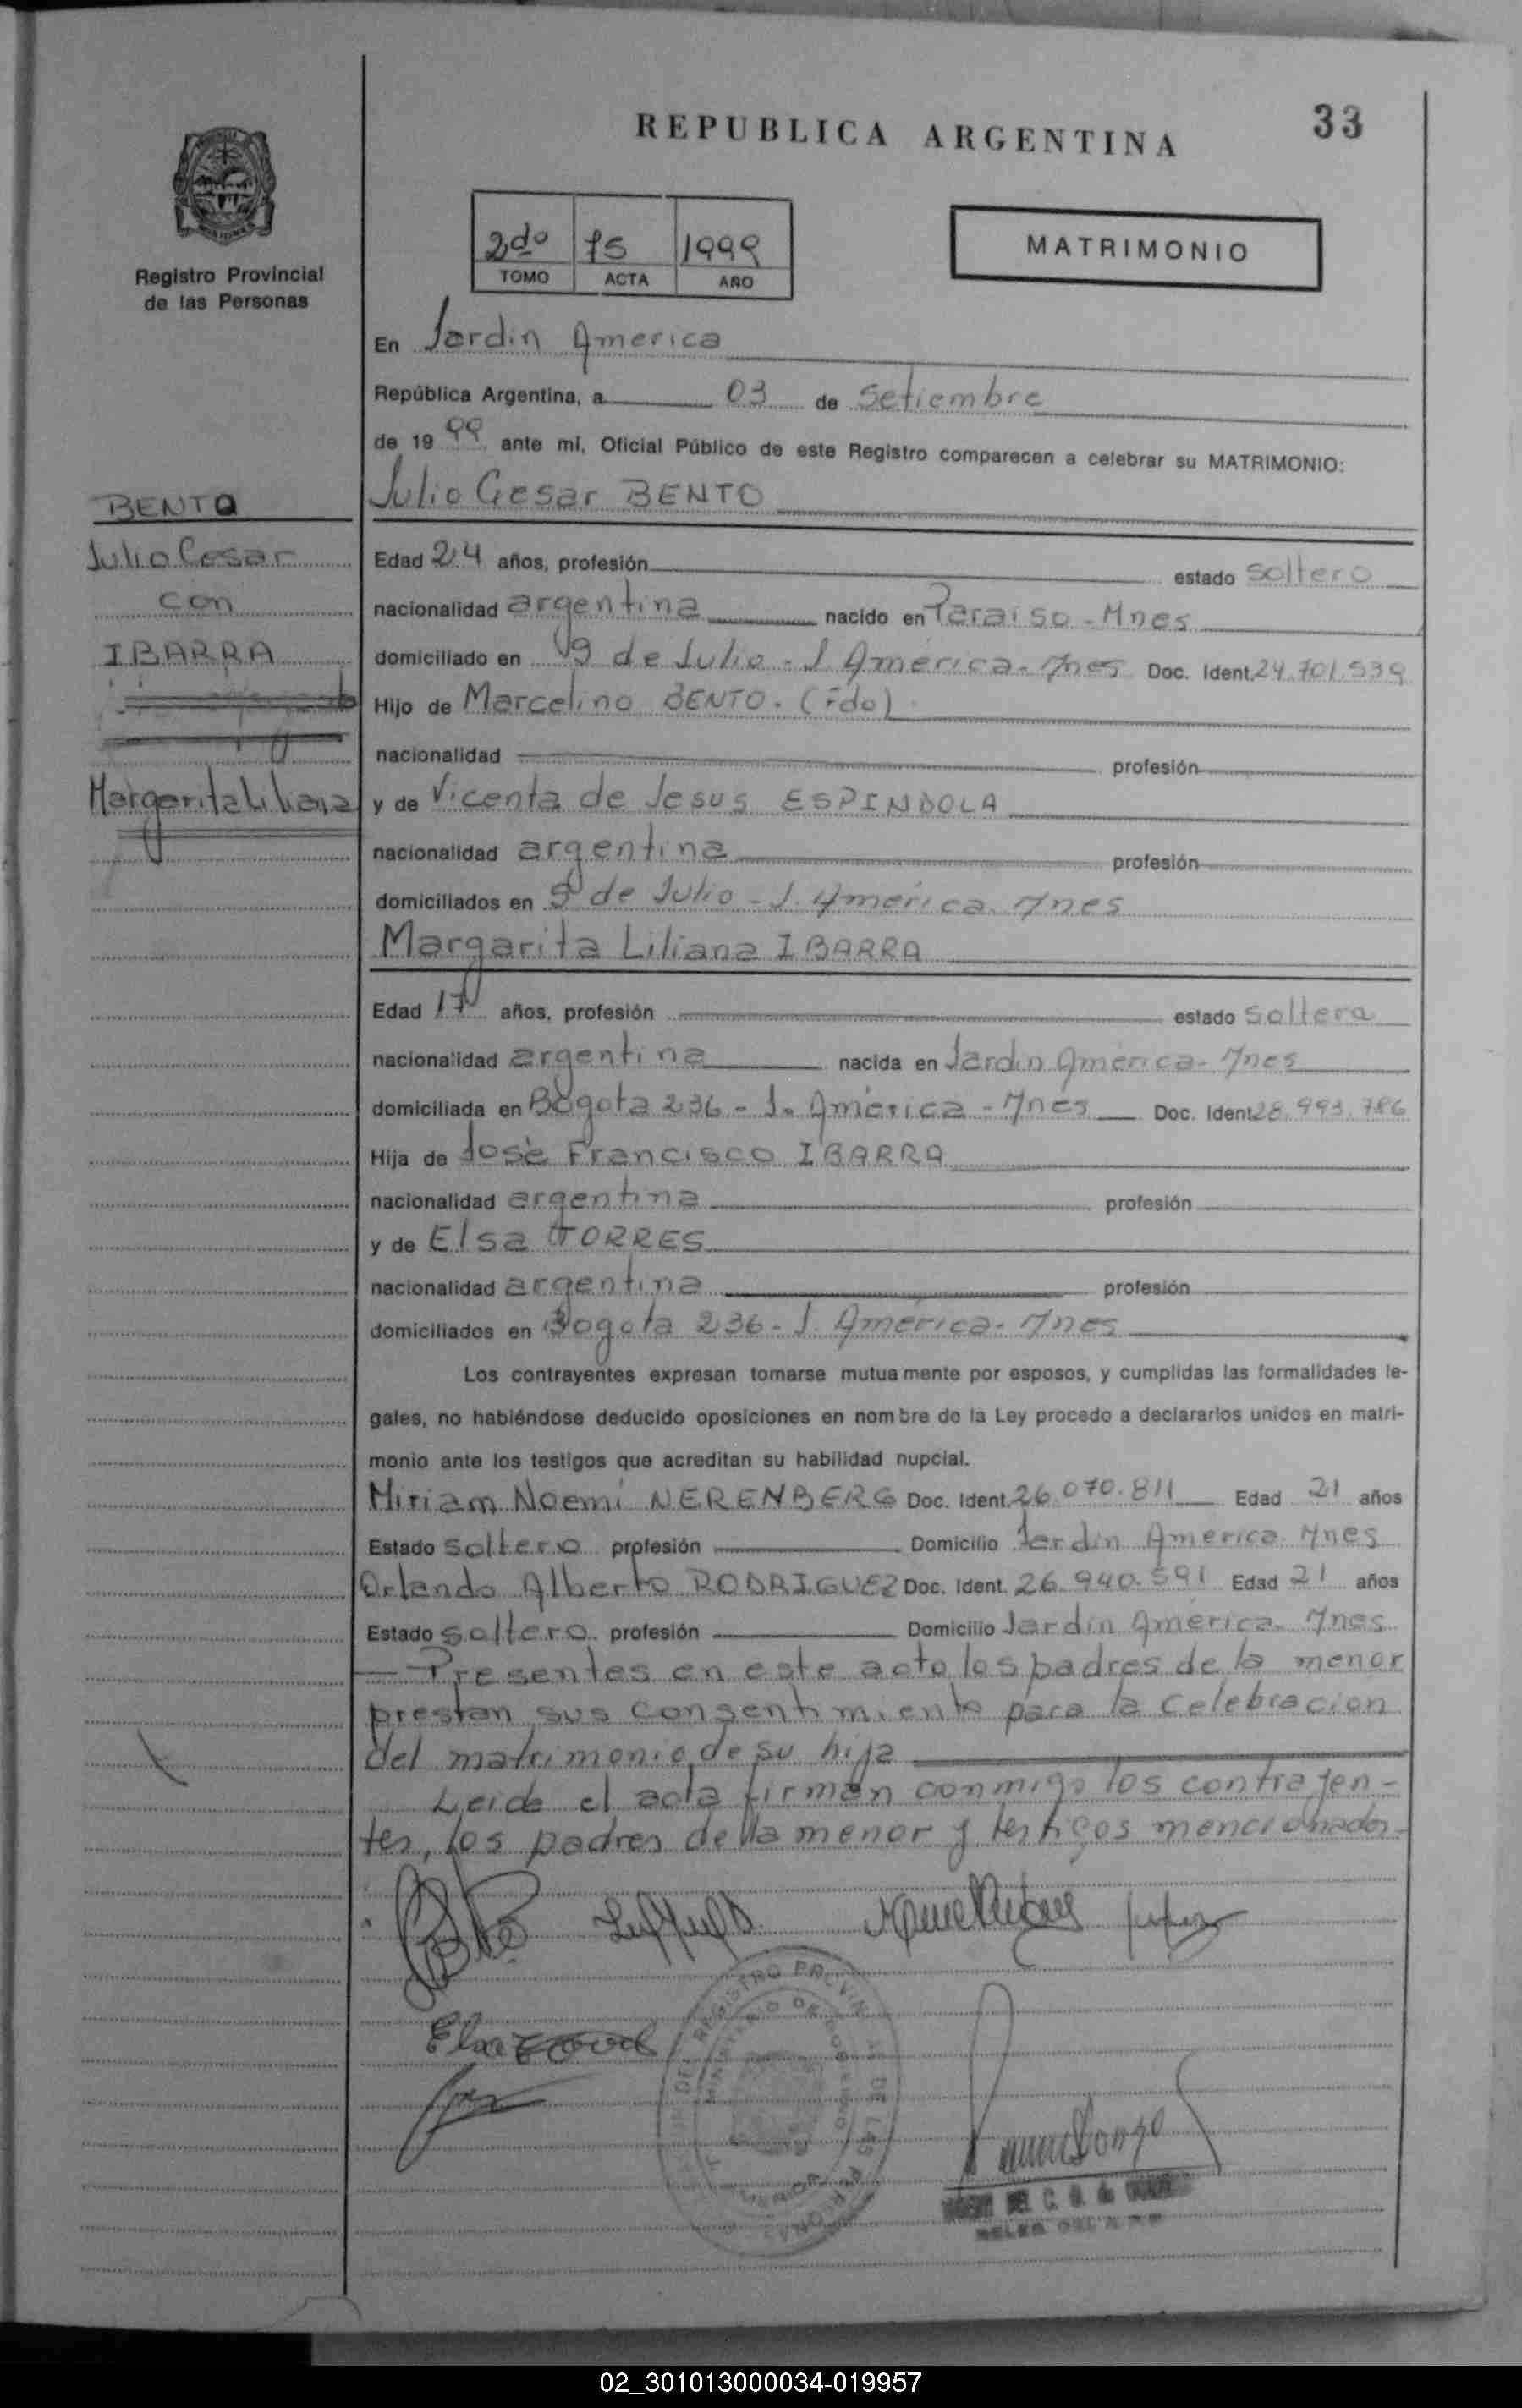 33
REPUBLICA ARGENTINA
Registro Provincial
de las Personas
2do 75 1999
TOMO ACTA AÑO
MATRIMONIO
En Jardin America
República Argentina, a 03 de Setiembre
de 19 99 ante mi, Oficial Público de este Registro comparecen a celebrar su MATRIMONIO:
BENTO
Julio Cesar
con
IBARRA
Margarita Liliana
Julio Cesar BENTO
Edad 24 años, profesión estado soltero
nacionalidad argentina nacido en Paraiso - Mnes
domiciliado en 9 de Julio - J. América - Mnes Doc. Ident. 24.701.539
Hijo de Marcelino BENTO. (fdo)
nacionalidad profesión
y de Vicenta de Jesus ESPINDOLA
nacionalidad argentina profesión
domiciliados en 9 de Julio - J. América. Mnes
Margarita Liliana IBARRA
Edad 17 años, profesión estado soltera
nacionalidad argentina nacida en Jardin América - Mnes
domiciliada en Bogota 236 - J. América - Mnes Doc. Ident. 28.993.786
Hija de Josè Francisco IBARRA
nacionalidad argentina profesión
y de Elsa TORRES
nacionalidad argentina profesión
domiciliados en Bogota 236 - J. América - Mnes
Los contrayentes expresan tomarse mutuamente por esposos, y cumplidas las formalidades le-
gales, no habiéndose deducido oposiciones en nombre de la Ley procedo a declararlos unidos en matri-
monio ante los testigos que acreditan su habilidad nupcial.
Miriam Noemi NERENBERG Doc. Ident. 26.070.811 Edad 21 años
Estado soltero profesión Domicilio Jardin America Mnes
Orlando Alberto RODRIGUEZ Doc. Ident. 26.940.591 Edad 21 años
Estado soltero profesión Domicilio Jardin América. Mnes
Presentes en este acto los padres de la menor
prestan sus consentimiento para la celebracion
del matrimonio de su hija
Leida el acta firman conmigo los contrayen-
tes, los padres de la menor y testigos mencionados
02_301013000034-019957